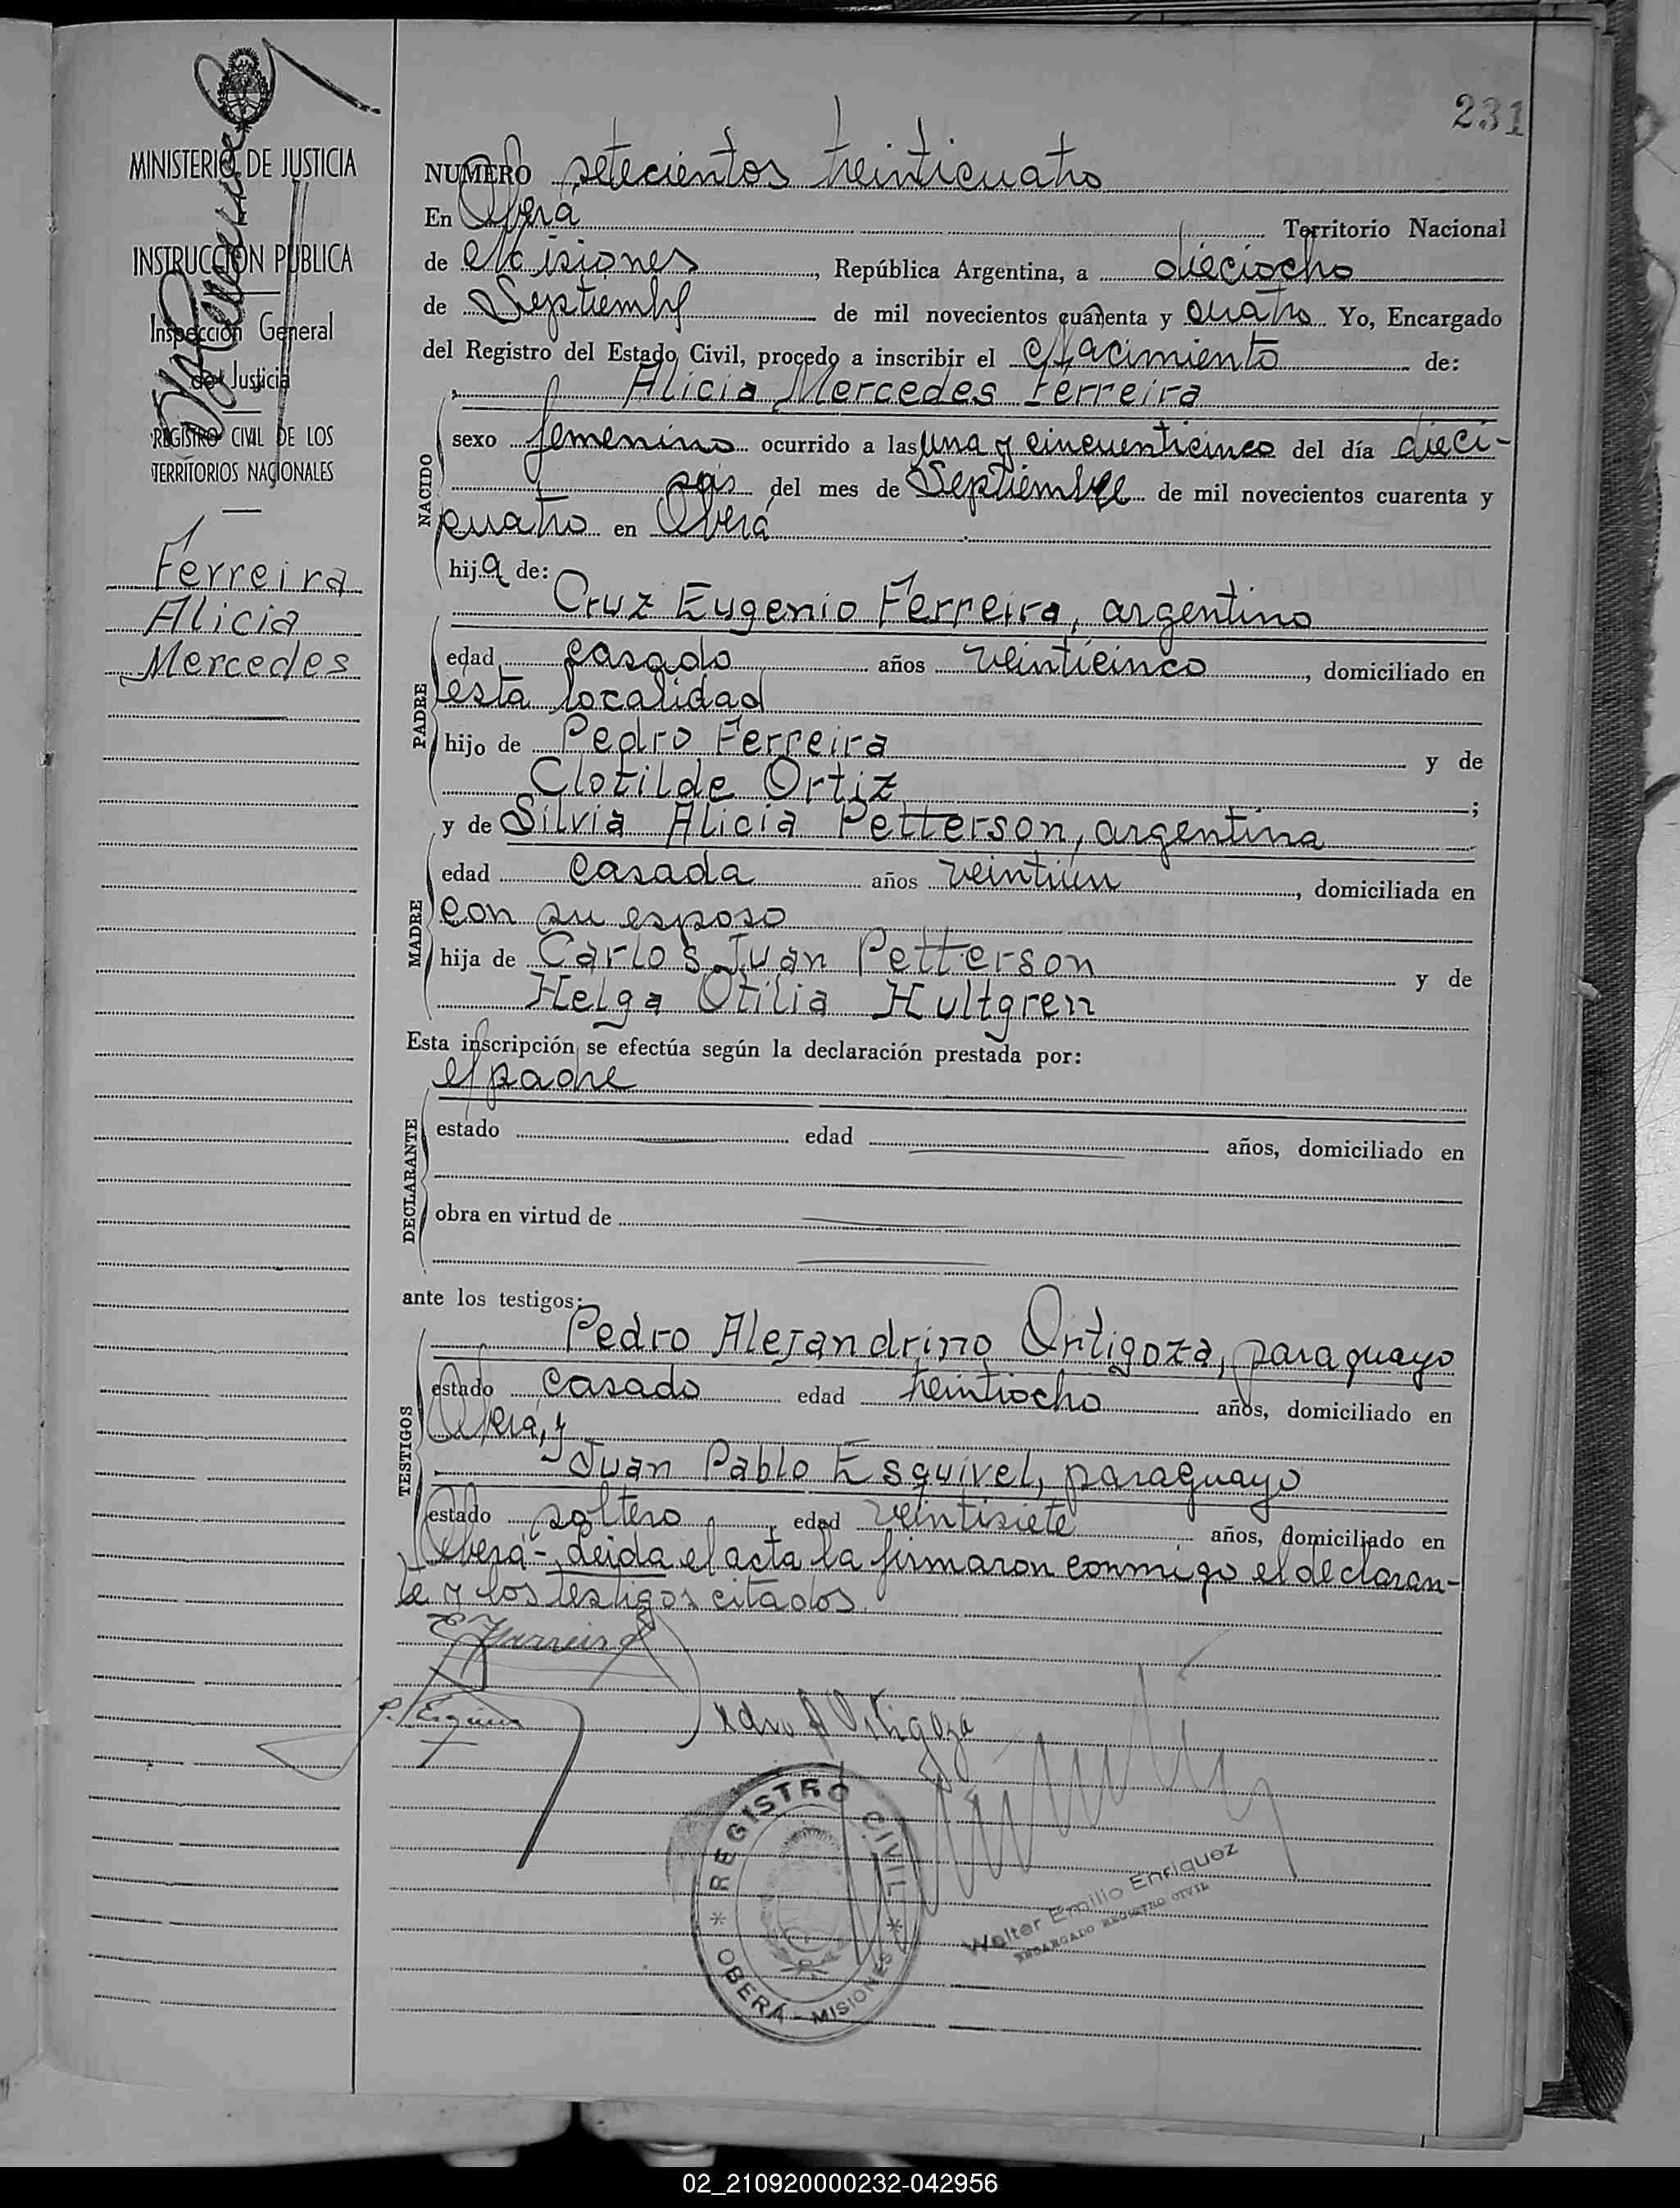 231
MINISTERIO DE JUSTICIA
E
INSTRUCCIÓN PUBLICA
Inspección General
de Justicia
REGISTRO CIVIL DE LOS
TERRITORIOS NACIONALES
Ferreira
Alicia
Mercedes
NUMERO setecientos treinticuatro
En Oberá Territorio Nacional
de Misiones, República Argentina, a dieciocho
de Septiembre de mil novecientos cuarenta y cuatro Yo, Encargado
del Registro del Estado Civil, procedo a inscribir el Nacimiento de:
Alicia Mercedes Ferreira
NACIDO
sexo femenino ocurrido a las una y cincuenticinco del día dieci-
seis del mes de Septiembre de mil novecientos cuarenta y
cuatro en Oberá
hija de:
Cruz Eugenio Ferreira, argentino
PADRE
edad casado años veinticinco, domiciliado en
esta localidad
hijo de Pedro Ferreira y de
Clotilde Ortiz;
y de Silvia Alicia Petterson, argentina
MADRE
edad casada años veintiun, domiciliada en
con su esposo
hija de Carlos Juan Petterson y de
Helga Otilia Hultgren
Esta inscripción se efectúa según la declaración prestada por:
el padre
DECLARANTE
estado edad años, domiciliado en
obra en virtud de
ante los testigos:
Pedro Alejandrino Ortigoza, paraguayo
TESTIGOS
estado casado edad treintiocho años, domiciliado en
Oberá, y
Juan Pablo Esquivel, paraguayo
estado soltero edad veintisiete años, domiciliado en
Oberá-, leida el acta la firmaron conmigo el declaran-
te y los testigos citados.
E Ferreira
P. Esquivel
Pedro A Ortigoza
REGISTRO CIVIL
* OBERÁ - MISIONES *
Walter Emilio Enriquez
ENCARGADO REGISTRO CIVIL
02_210920000232-042956